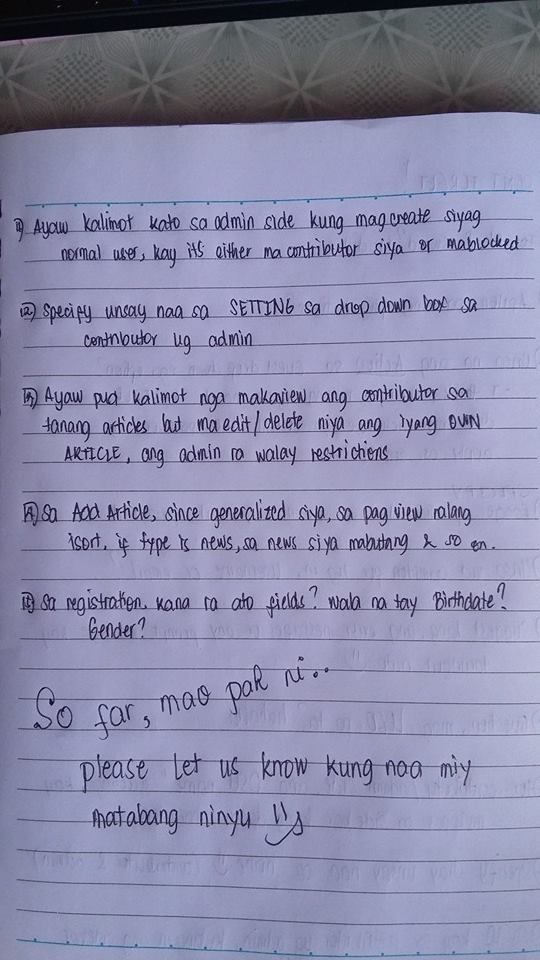 11) Ayaw kalimot kato sa admin side kung mag create siyag
normal user, kay its either ma contributor siya or mablocked
12) Specify unsay naa sa SETTING sa drop down box sa
contributor ug admin
13) Ayaw pud kalimot nga makaview ang contributor sa
tanang articles but ma edit/delete niya ang iyang OWN
ARTICLE, ang admin ra walay restrictions
14) Sa Add Article, since generalized siya, sa pag view nalang
isort, if type is news, sa news siya mabutang & so on.
15) Sa registration, kana ra ato fields? Wala na tay Birthdate?
Gender?
So far, mao pah ni..
please let us know kung naa miy
matabang ninyu